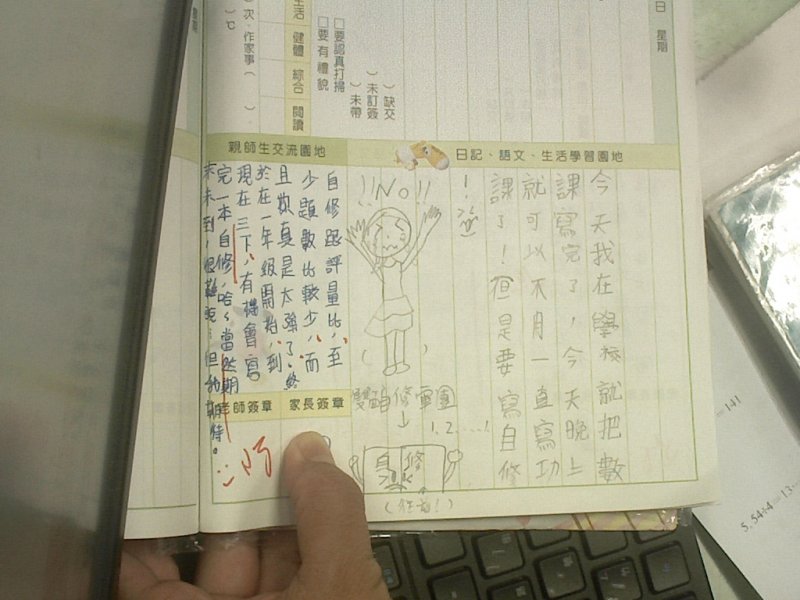 日 星期
活 健體 綜合 閱讀
次、作家事( )
)℃
□要認真打掃
□要有禮貌
)缺交
)未訂簽
)未帶
日記、語文、生活學習園地
今天我在學校就把數
課寫完了，今天晚上
就可以不用一直寫功
課了！但是要寫自修
！
!!No!!
自修軍團
1,2……!
自修
親師生交流園地
自修跟評量比，至
少題數比較少，而
且歡真是太強了，終
於在一年級開始，到
現在三下，有機會寫
完一本自修，哈～當然期
末未到，很難說…但我期待。
老師簽章
家長簽章
141
5.54÷4=13